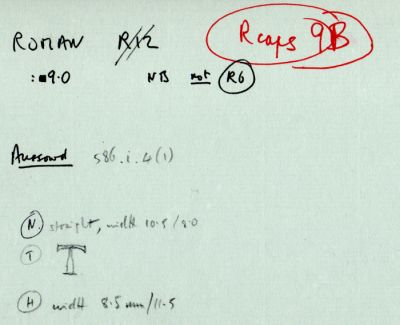 ROMAN R12 Rcaps 9B
: 9.0 NB not R6
586.i.4(1)
N. straight, width 10.5/9.0
T
H width 8.5 mm/11.5